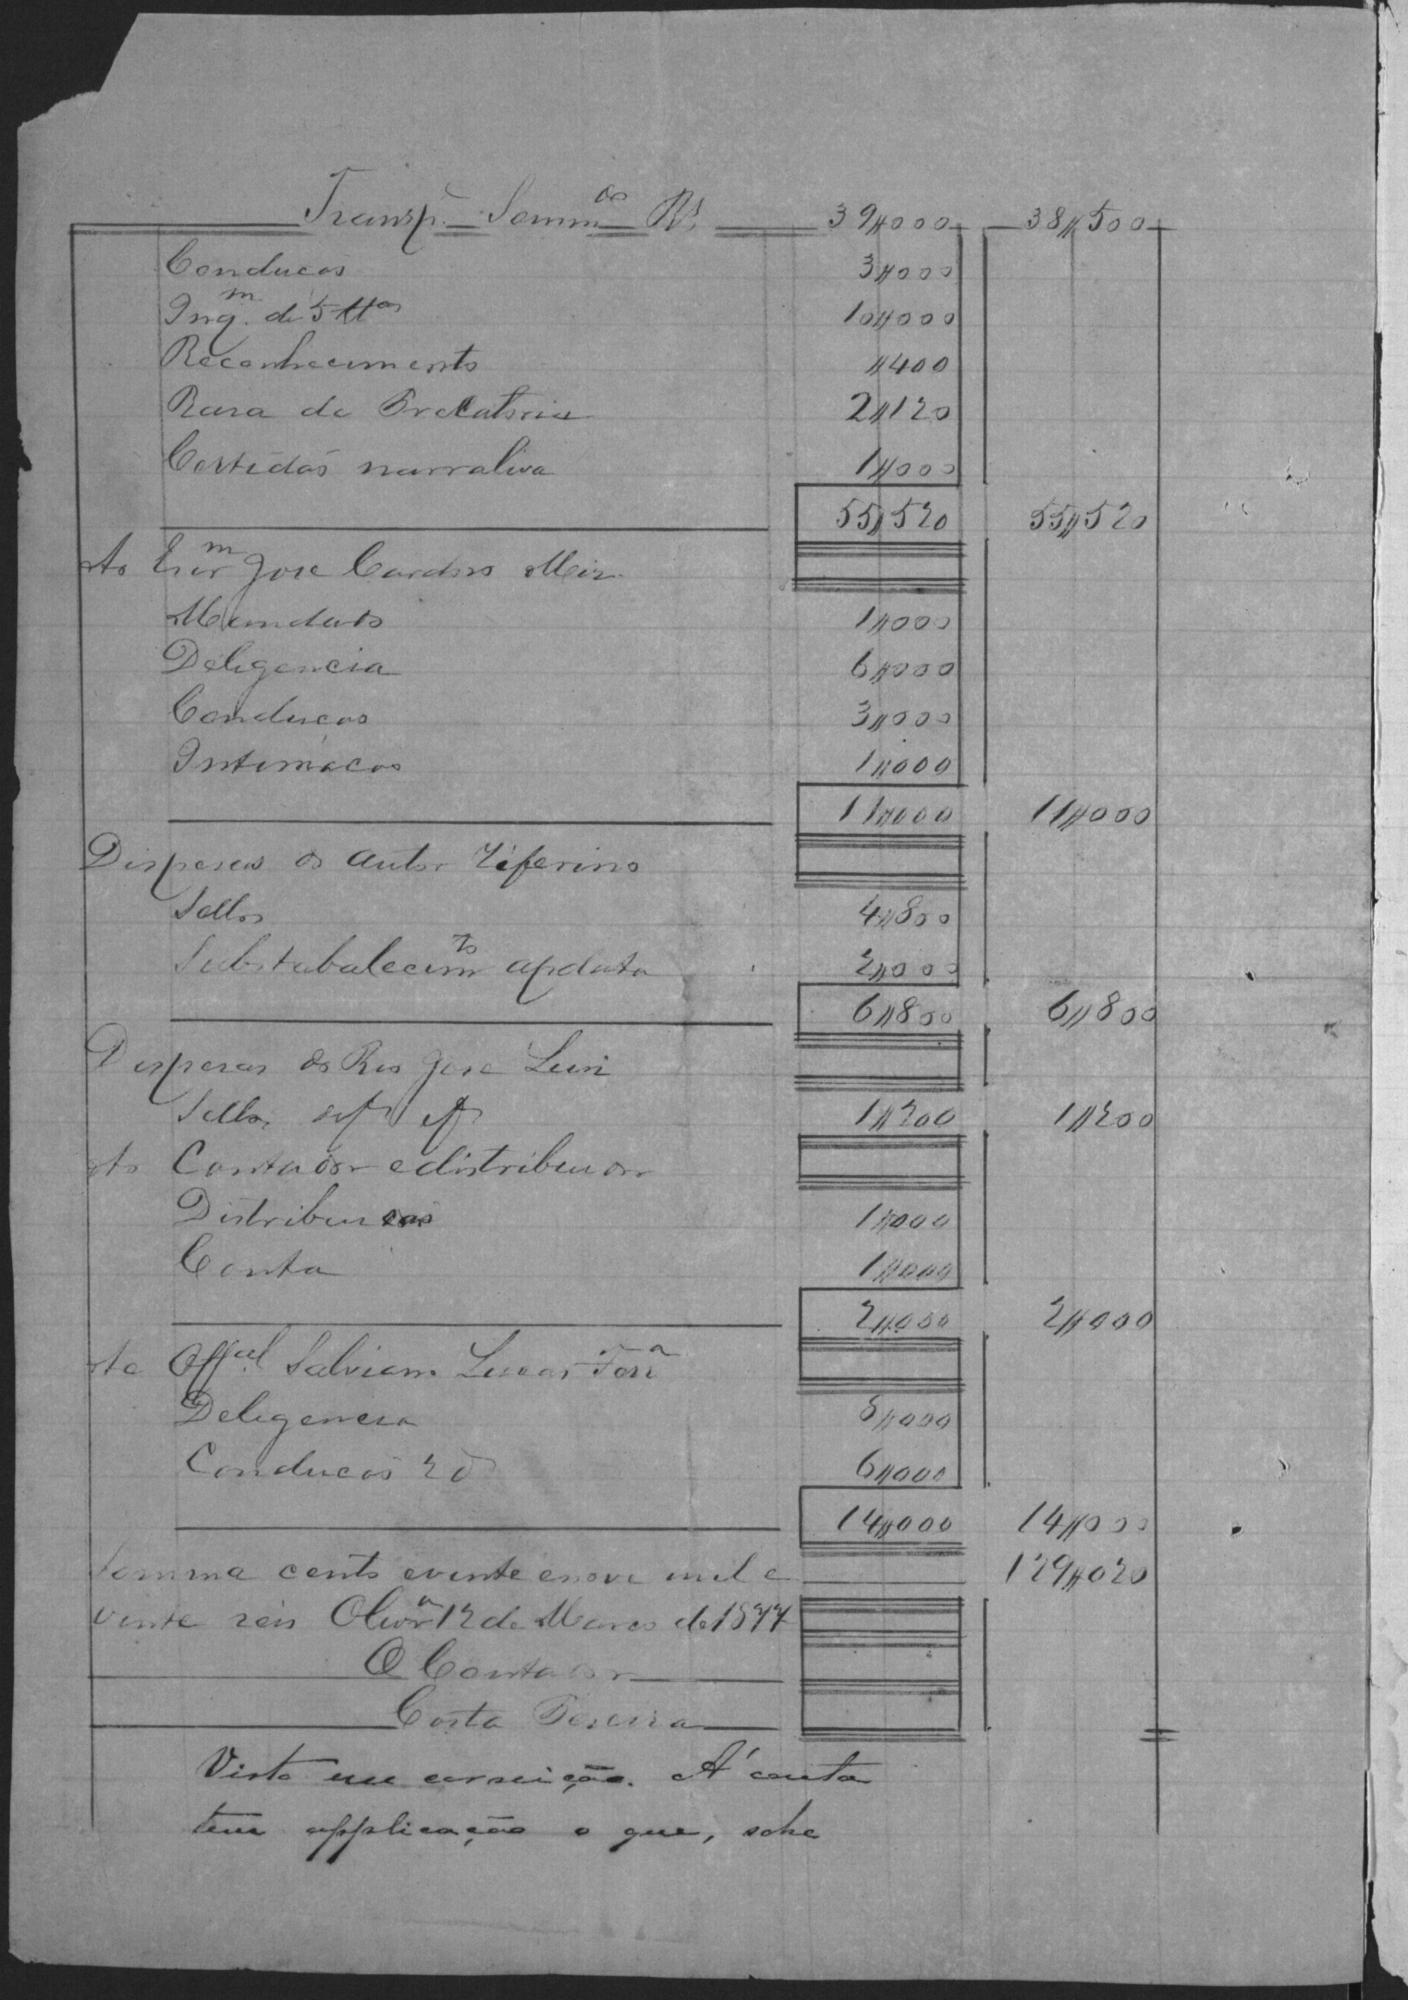 Transp. Somm.as Rs 39,,000 38,,500
Conducas 3,,000
Inq.m de 5 tt.as 10,,000
Reconhecimento ,,400
Raza da Precatoria 2,,120
Certidaõ narrativa 1,,000
55,,520 55,,520
Ao Escr.m Jose Cardoso
Mandado 1,,000
Deligencia 6,,000
Conducas 3,,000
Intimacao 1,,000
11,,000 11,,000
Dispesas do autor Zeferino
Sellos 4,,800
Substabalecim.to apdacta 2,,000
6,,800 6,,800
Dispesas do Reo Jose Luis
Sellos 1,,200 1,,200
Ao Contador e distribuidor
Distribuicaõ 1,,000
Conta 1,,000
2,,000 2,,000
Ao Off.al Salviam Lucas Ferr.a
Deligencia 8,,000
Conducaõ 6,,000
14,,000 14,,000
Somma cento evinte enove mil e 129,,020
vinte reis Olivr.a 12 de Março de 1877
O Contador
Costa Pereira
Visto em correição. A' conta
tem applicação o que, sobe